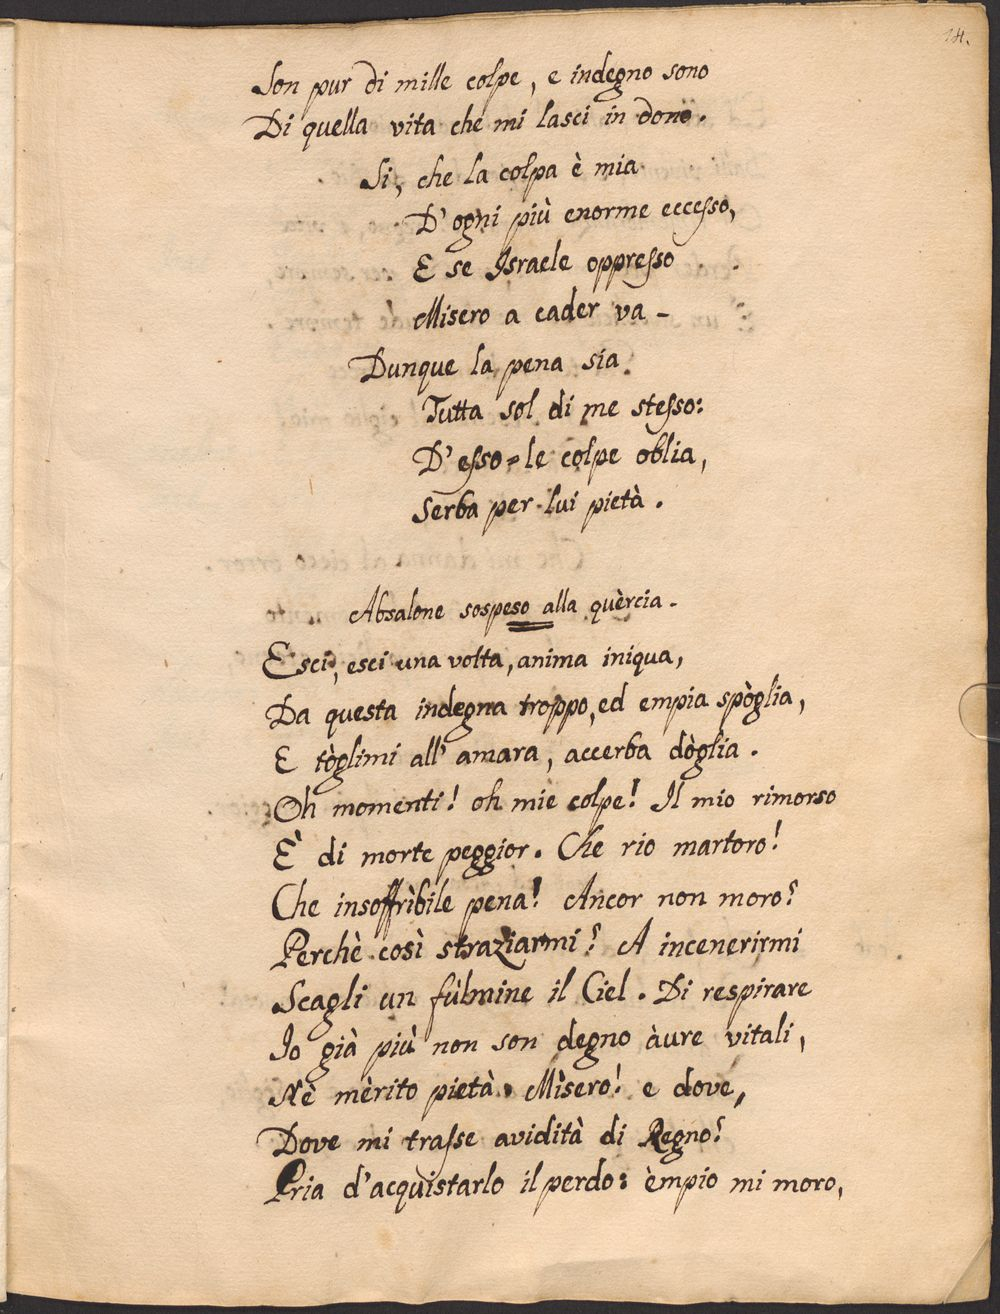 14.
Son pur di mille colpe, e indegno sono
Di quella vita che mi lasci in dono.
Si, che la colpa è mia
D'ogni più enorme eccesso,
E se Israele oppresso
Misero a cader va -
Dunque la pena sia
Tutta sol di me stesso:
D'esso le colpe oblia,
Serba per lui pietà.
Absalone sospeso alla quèrcia.
Esci, esci una volta, anima iniqua,
Da questa indegna troppo, ed empia spòglia,
E tòglimi all' amara, accerba dòglia.
Oh momenti! oh mie colpe! Il mio rimorso
È di morte peggior. Che rio martoro!
Che insoffrìbile pena! Ancor non moro?
Perchè così straziarmi? A incenerirmi
Scagli un fùlmine il Ciel. Di respirare
Io già più non son degno àure vitali,
Nè mèrito pietà. Mìsero! e dove,
Dove mi trasse avidità di Regno?
Pria d'acquistarlo il perdo: èmpio mi moro,